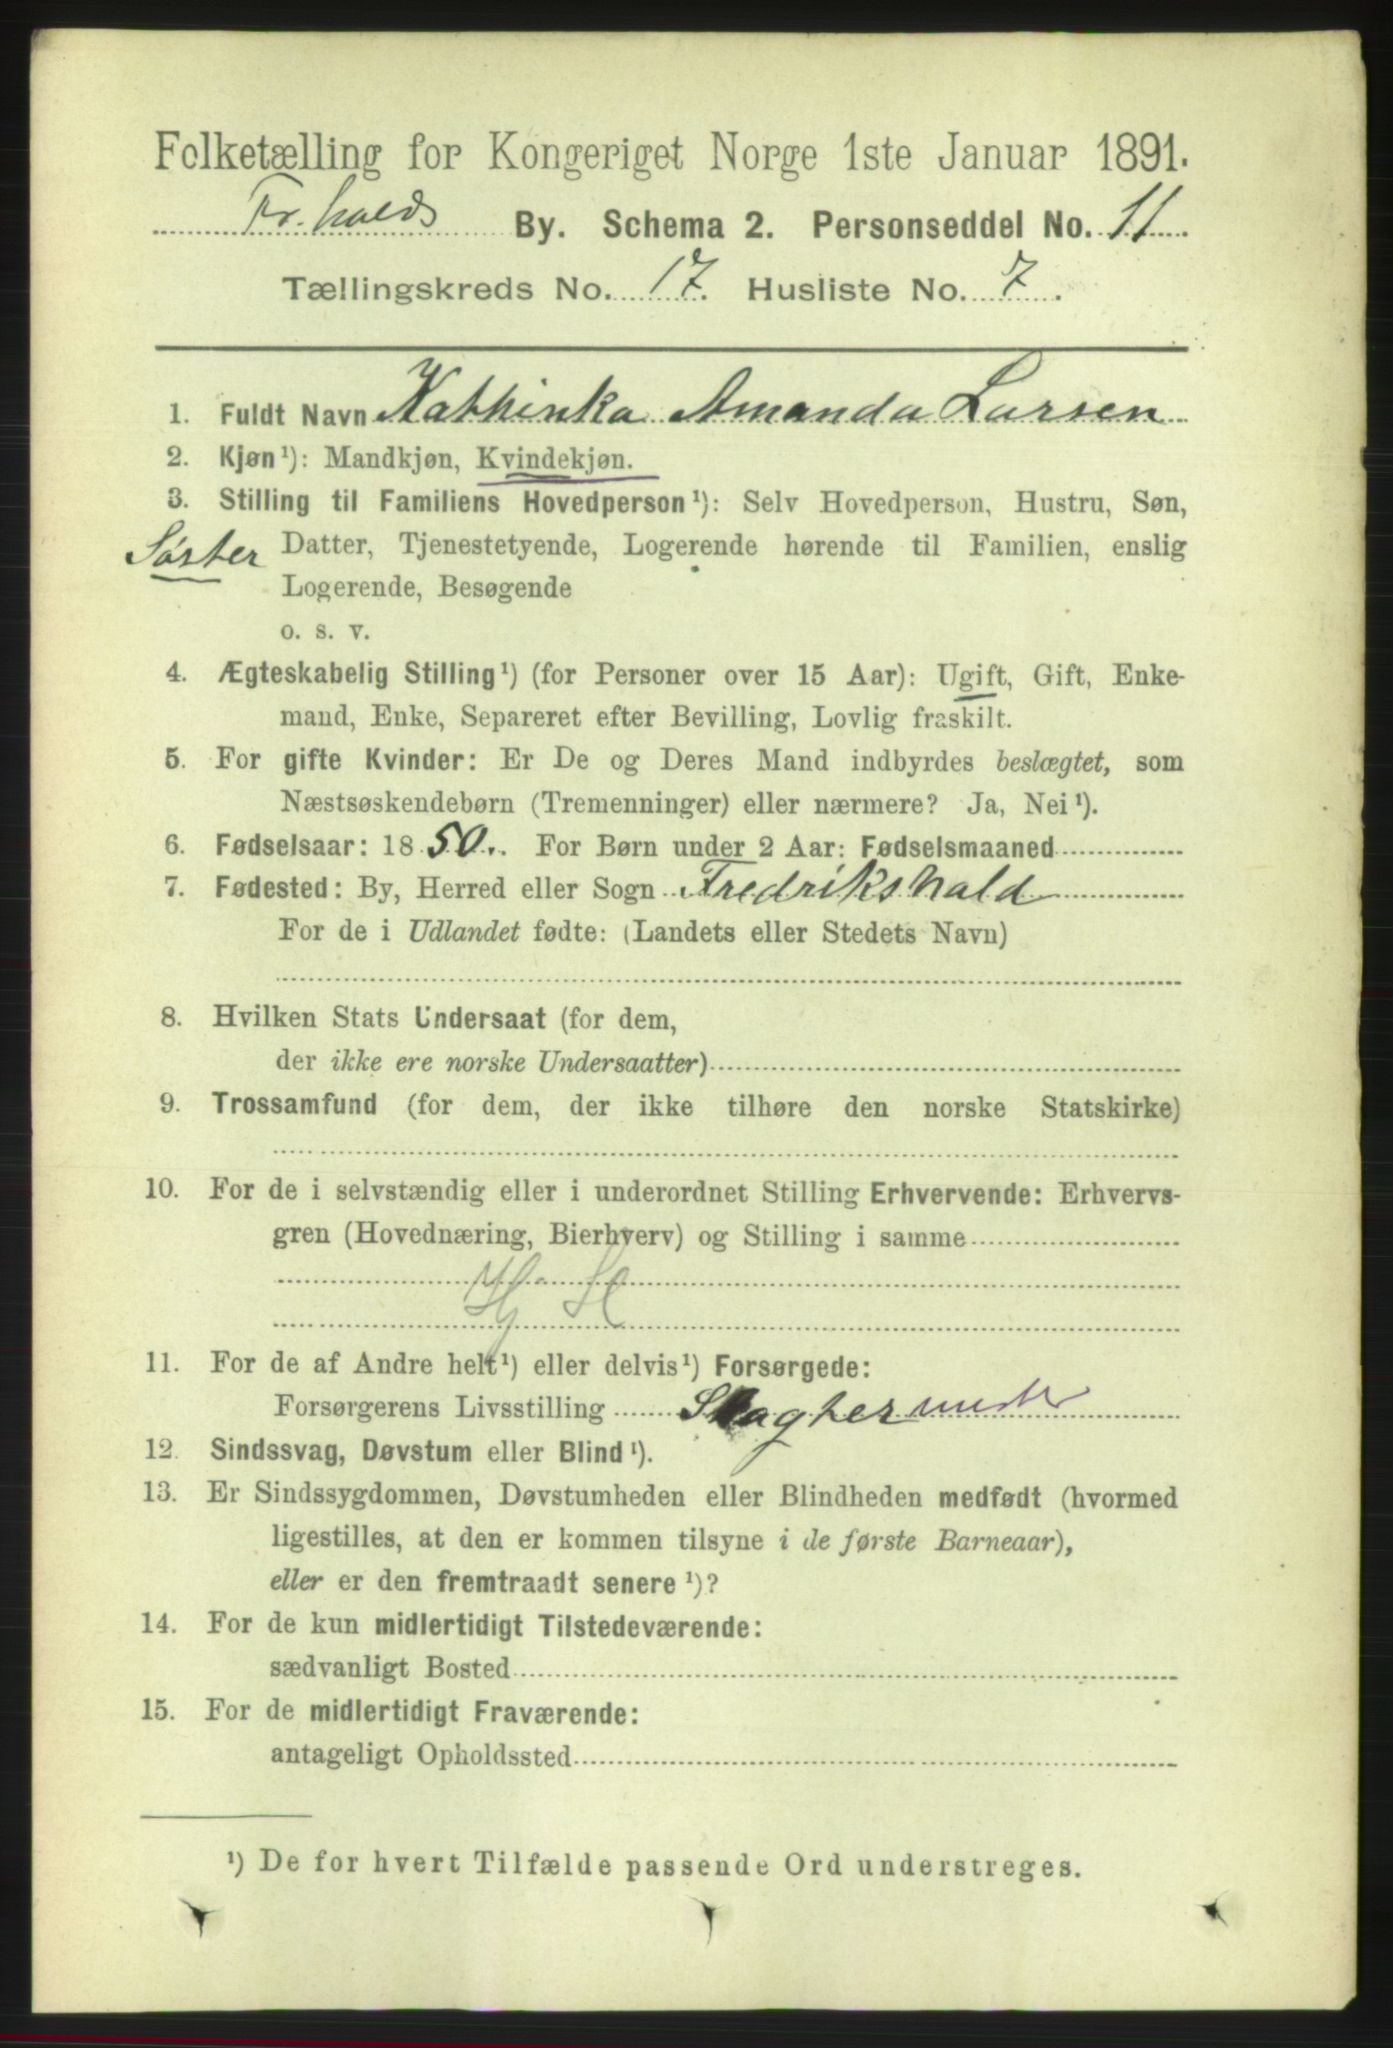 Folketælling for Kongeriget Norge 1ste Januar 1891.
Fr.halds By. Schema 2. Personseddel No. 11
Tællingskreds No. 17. Husliste No. 7.
1. Fuldt Navn Kathinka Amanda Larsen
2. Kjøn¹): Mandkjøn, Kvindekjøn.
3. Stilling til Familiens Hovedperson¹): Selv Hovedperson, Hustru, Søn,
Søster Datter, Tjenestetyende, Logerende hørende til Familien, enslig
Logerende, Besøgende
o. s. v.
4. Ægteskabelig Stilling¹) (for Personer over 15 Aar): Ugift, Gift, Enke-
mand, Enke, Separeret efter Bevilling, Lovlig fraskilt.
5. For gifte Kvinder: Er De og Deres Mand indbyrdes beslægtet, som
Næstsøskendebørn (Tremenninger) eller nærmere? Ja, Nei¹).
6. Fødselsaar: 1850. For Børn under 2 Aar: Fødselsmaaned
7. Fødested: By, Herred eller Sogn Fredrikshald
For de i Udlandet fødte: (Landets eller Stedets Navn)
8. Hvilken Stats Undersaat (for dem,
der ikke ere norske Undersaatter)
9. Trossamfund (for dem, der ikke tilhøre den norske Statskirke)
10. For de i selvstændig eller i underordnet Stilling Erhvervende: Erhvervs-
gren (Hovednæring, Bierhverv) og Stilling i samme
Hj H
11. For de af Andre helt¹) eller delvis¹) Forsørgede:
Forsørgerens Livsstilling Slagtermester
12. Sindssvag, Døvstum eller Blind¹).
13. Er Sindssygdommen, Døvstumheden eller Blindheden medfødt (hvormed
ligestilles, at den er kommen tilsyne i de første Barneaar),
eller er den fremtraadt senere¹)?
14. For de kun midlertidigt Tilstedeværende:
sædvanligt Bosted
15. For de midlertidigt Fraværende:
antageligt Opholdssted
¹) De for hvert Tilfælde passende Ord understreges.